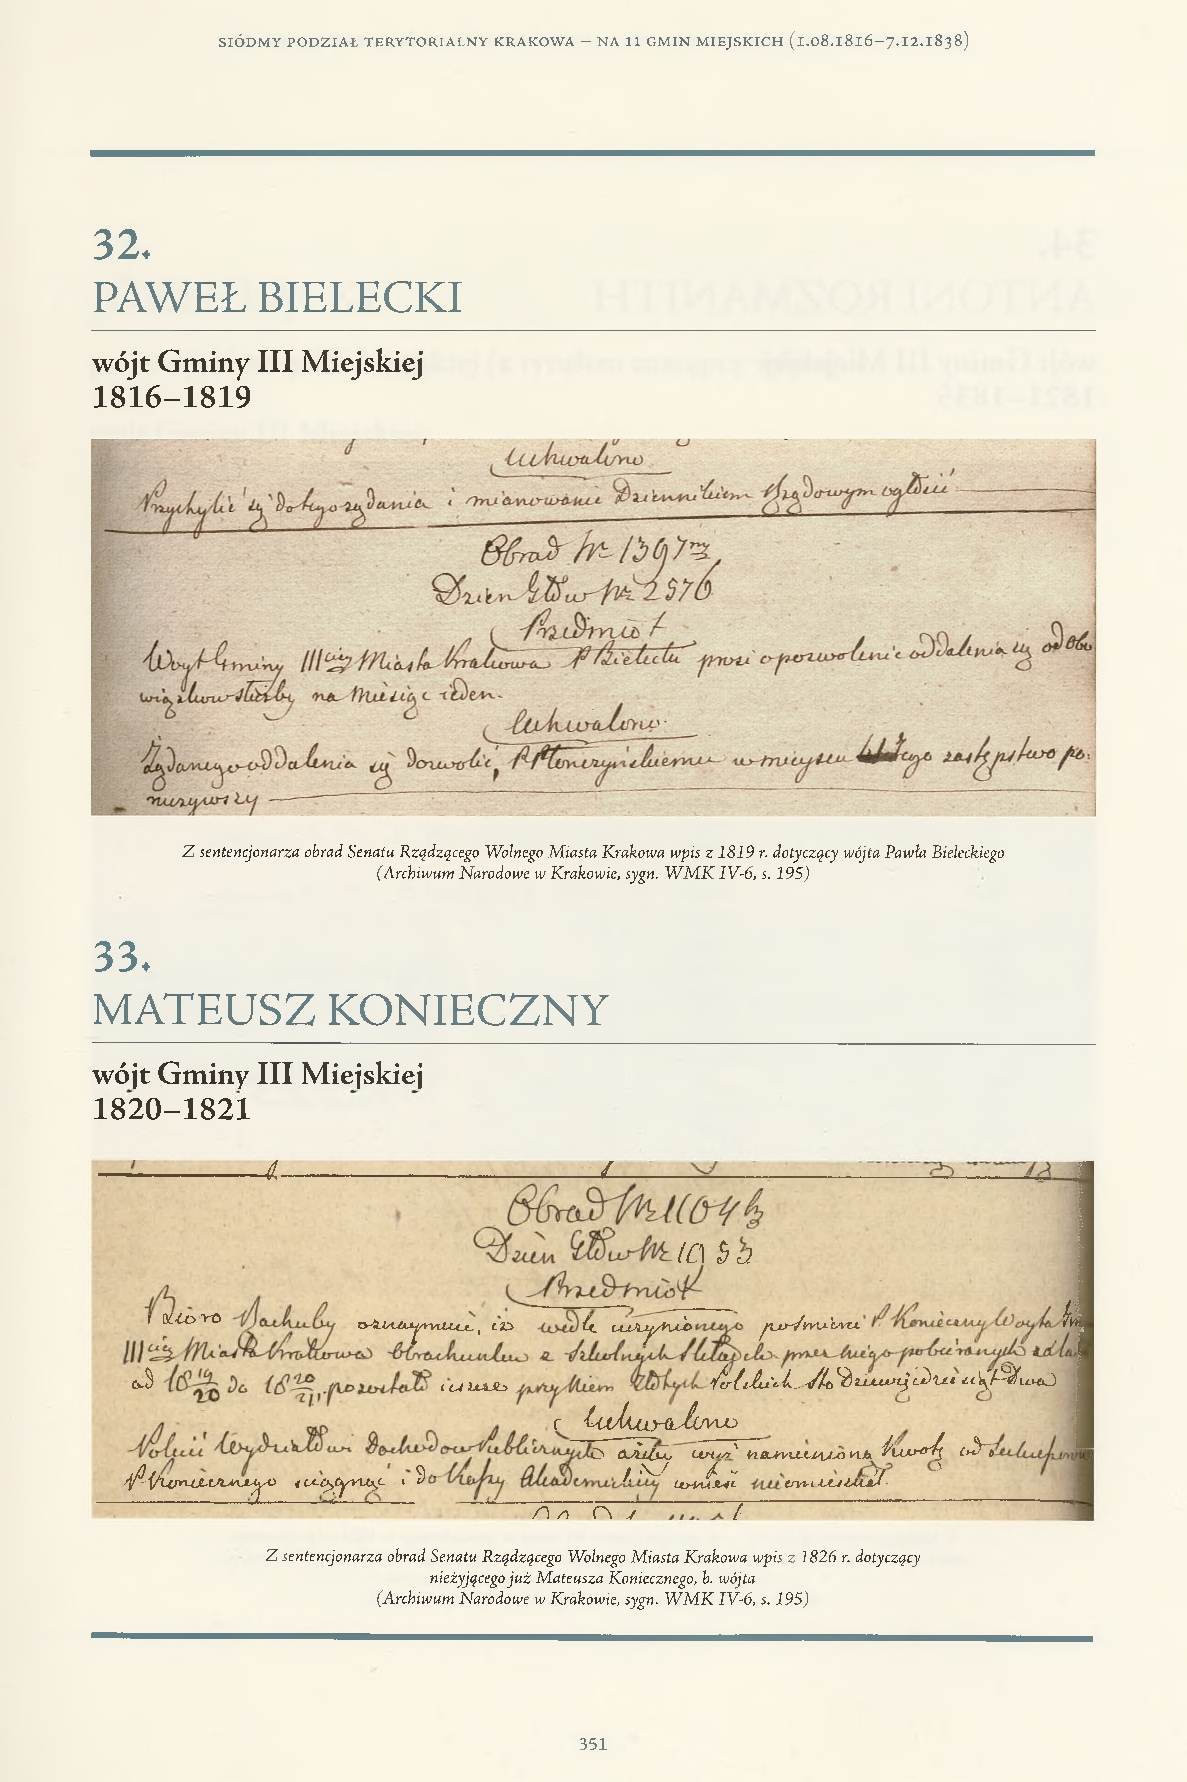 SIÓDMY PODZIAŁ TERYTORIALNY KRAKOWA – NA 11 GMIN MIEJSKICH (1.08.1816–7.12.1838)
32.
PAWEŁ BIELECKI
wójt Gminy III Miejskiej
1816–1819
Uchwalono
Przychylić się do tego żądania i mianowanie Dziennikiem Rządowym ogłosić
Obrad Nr 1397
Dzien Głów Nr 2576
Przedmiot
Woyt Gminy III Miasta Krakowa P Bielecki prosi o pozwolenie oddalenia się od Obo
wiązków służby na Miesiąc ieden.
Uchwalono
Żądanego oddalenia się dozwolić, P Płonczyńskiemu w mieyscu zastępstwo po-
ruczywszy
Z sentencjonarza obrad Senatu Rządzącego Wolnego Miasta Krakowa wpis z 1819 r. dotyczący wójta Pawła Bieleckiego
(Archiwum Narodowe w Krakowie, sygn. WMK IV-6, s. 195)
33.
MATEUSZ KONIECZNY
wójt Gminy III Miejskiej
1820–1821
Obrad Nr 1104
Dzien Głów Nr 1953
Przedmiot
Bióro Rachuby oznaymuie, iż wedle uczynionego pośmierci P. Konieczny Woyta
III Miasta Krakowa Obrachunku z Szkolnych Składek przez niego pobieranych
od 18 19/20 do 18 20/21, pozostało ieszcze przy Niem Złotych Polskich Sto Dziewięćdziesiąt Dwa
Uchwalono
Polecić Wydziałowi Dochodów Publicznych ażeby wyż namienioną Kwotę od
P Koniecznego sciągnąć i do Kassy Akademickiey wnieść nieomieszkał.
Z sentencjonarza obrad Senatu Rządzącego Wolnego Miasta Krakowa wpis z 1826 r. dotyczący
nieżyjącego już Mateusza Koniecznego, b. wójta
(Archiwum Narodowe w Krakowie, sygn. WMK IV-6, s. 195)
351